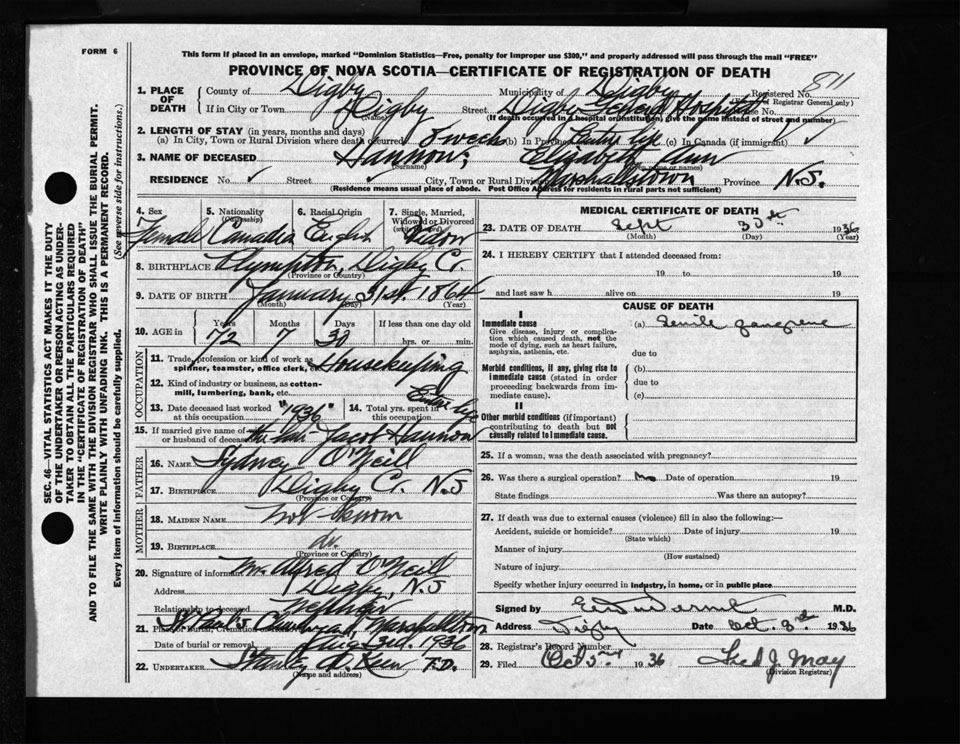 FORM 6
This form if placed in an envelope, marked "Dominion Statistics—Free, penalty for improper use $300," and properly addressed will pass through the mail "FREE"
PROVINCE OF NOVA SCOTIA—CERTIFICATE OF REGISTRATION OF DEATH
811
1. PLACE OF DEATH County of Digby Municipality of Digby Registered No. (Use of Registrar General only)
If in City or Town Digby (Name) Street Digby General Hospital House No.
(If death occurred in a hospital or institution, give the name instead of street and number)
2. LENGTH OF STAY (in years, months and days)
(a) In City, Town or Rural Division where death occurred 8 weeks (b) In Province Entire life (c) In Canada (if immigrant)
3. NAME OF DECEASED Hannon, Elizabeth Ann
(Surname)
RESIDENCE No. ✓ Street ✓ City, Town or Rural Division Marshalltown Province N.S.
(Residence means usual place of abode. Post Office Address for residents in rural parts not sufficient)
SEC. 46—VITAL STATISTICS ACT MAKES IT THE DUTY
OF THE UNDERTAKER OR PERSON ACTING AS UNDER-
TAKER TO OBTAIN ALL THE PARTICULARS REQUIRED
IN THE "CERTIFICATE OF REGISTRATION OF DEATH"
AND TO FILE THE SAME WITH THE DIVISION REGISTRAR WHO SHALL ISSUE THE BURIAL PERMIT.
WRITE PLAINLY WITH UNFADING INK. THIS IS A PERMANENT RECORD.
Every item of information should be carefully supplied. (See reverse side for instructions.)
4. Sex Female
5. Nationality (Citizenship) Canadian
6. Racial Origin English
7. Single, Married, Widowed or Divorced (write the word) Widow
8. BIRTHPLACE Plympton, Digby Co.
(Province or Country)
9. DATE OF BIRTH January 31st 1864
(Month) (Day) (Year)
10. AGE in Years 72 Months 7 Days 30 If less than one day old hrs. or min.
OCCUPATION
11. Trade, profession or kind of work as spinner, teamster, office clerk, etc. Housekeeping
12. Kind of industry or business, as cotton-mill, lumbering, bank, etc.
13. Date deceased last worked at this occupation "1936"
14. Total yrs. spent in this occupation Entire life
15. If married give name of wife or husband of deceased the late Jacob Hannon
FATHER
16. NAME Sydney O'Neill
17. Birthplace Digby Co. N.S
(Province or Country)
MOTHER
18. MAIDEN NAME Not known
19. BIRTHPLACE do.
(Province or Country)
20. Signature of informant Mr. Alfred O'Neill
Address Digby, N.S
Relationship to deceased
21. Place of Burial, Cremation or Removal St Paul's Churchyard, Marshalltown
Date of burial or removal 1936
22. UNDERTAKER Stanley F.D.
(Name and address)
MEDICAL CERTIFICATE OF DEATH
23. DATE OF DEATH Sept 30th 1936
(Month) (Day) (Year)
24. I HEREBY CERTIFY that I attended deceased from:
19 to 19
and last saw h alive on 19
CAUSE OF DEATH
I
Immediate cause
Give disease, injury or complication which caused death, not the mode of dying, such as heart failure, asphyxia, asthenia, etc.
(a) Senile gangrene
due to
Morbid conditions, if any, giving rise to immediate cause (stated in order proceeding backwards from immediate cause).
(b)
due to
(c)
II
Other morbid conditions (if important) contributing to death but not causally related to immediate cause.
25. If a woman, was the death associated with pregnancy?
26. Was there a surgical operation? no Date of operation 19
State findings Was there an autopsy?
27. If death was due to external causes (violence) fill in also the following:—
Accident, suicide or homicide? Date of injury 19
(State which)
Manner of injury
(How sustained)
Nature of injury
Specify whether injury occurred in industry, in home, or in public place
Signed by M.D.
Address Digby Date Oct. 3rd 1936
28. Registrar's Record Number
29. Filed Oct 5 1936 Fred J. May
(Division Registrar)